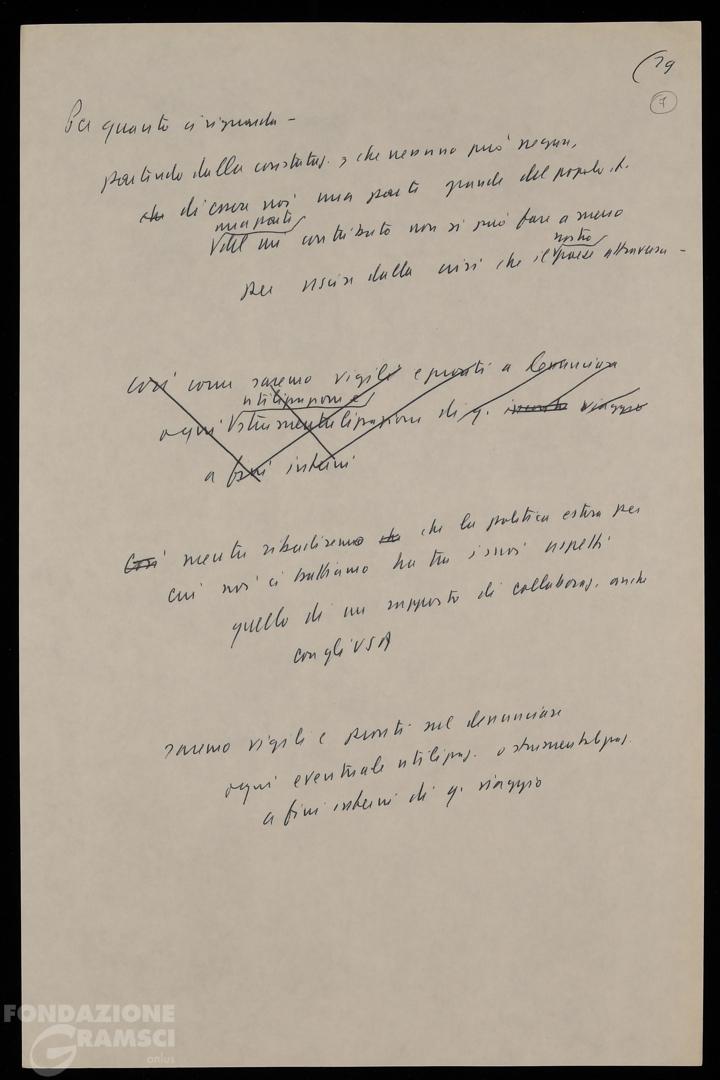 (79
7
Per quanto ci riguarda –
partendo dalla constataz. che nessuno può negare,
che di essere noi una parte grande del popolo it.
una parte
del cui contributo non si può fare a meno
nostro
per uscire dalla crisi che il paese attraversa –
così come saremo vigili e pronti a denunciare
utilizzazione e
ogni strumentalizzazione di q. viaggio
a fini interni
Così mentre ribadiremo che che la politica estera per
cui noi ci battiamo ha tra i suoi aspetti
quello di un rapporto di collaboraz. anche
con gli USA
saremo vigili e pronti nel denunciare
ogni eventuale utilizzaz. o strumentalizzaz.
a fini interni di q. viaggio
FONDAZIONE
GRAMSCI
onlus